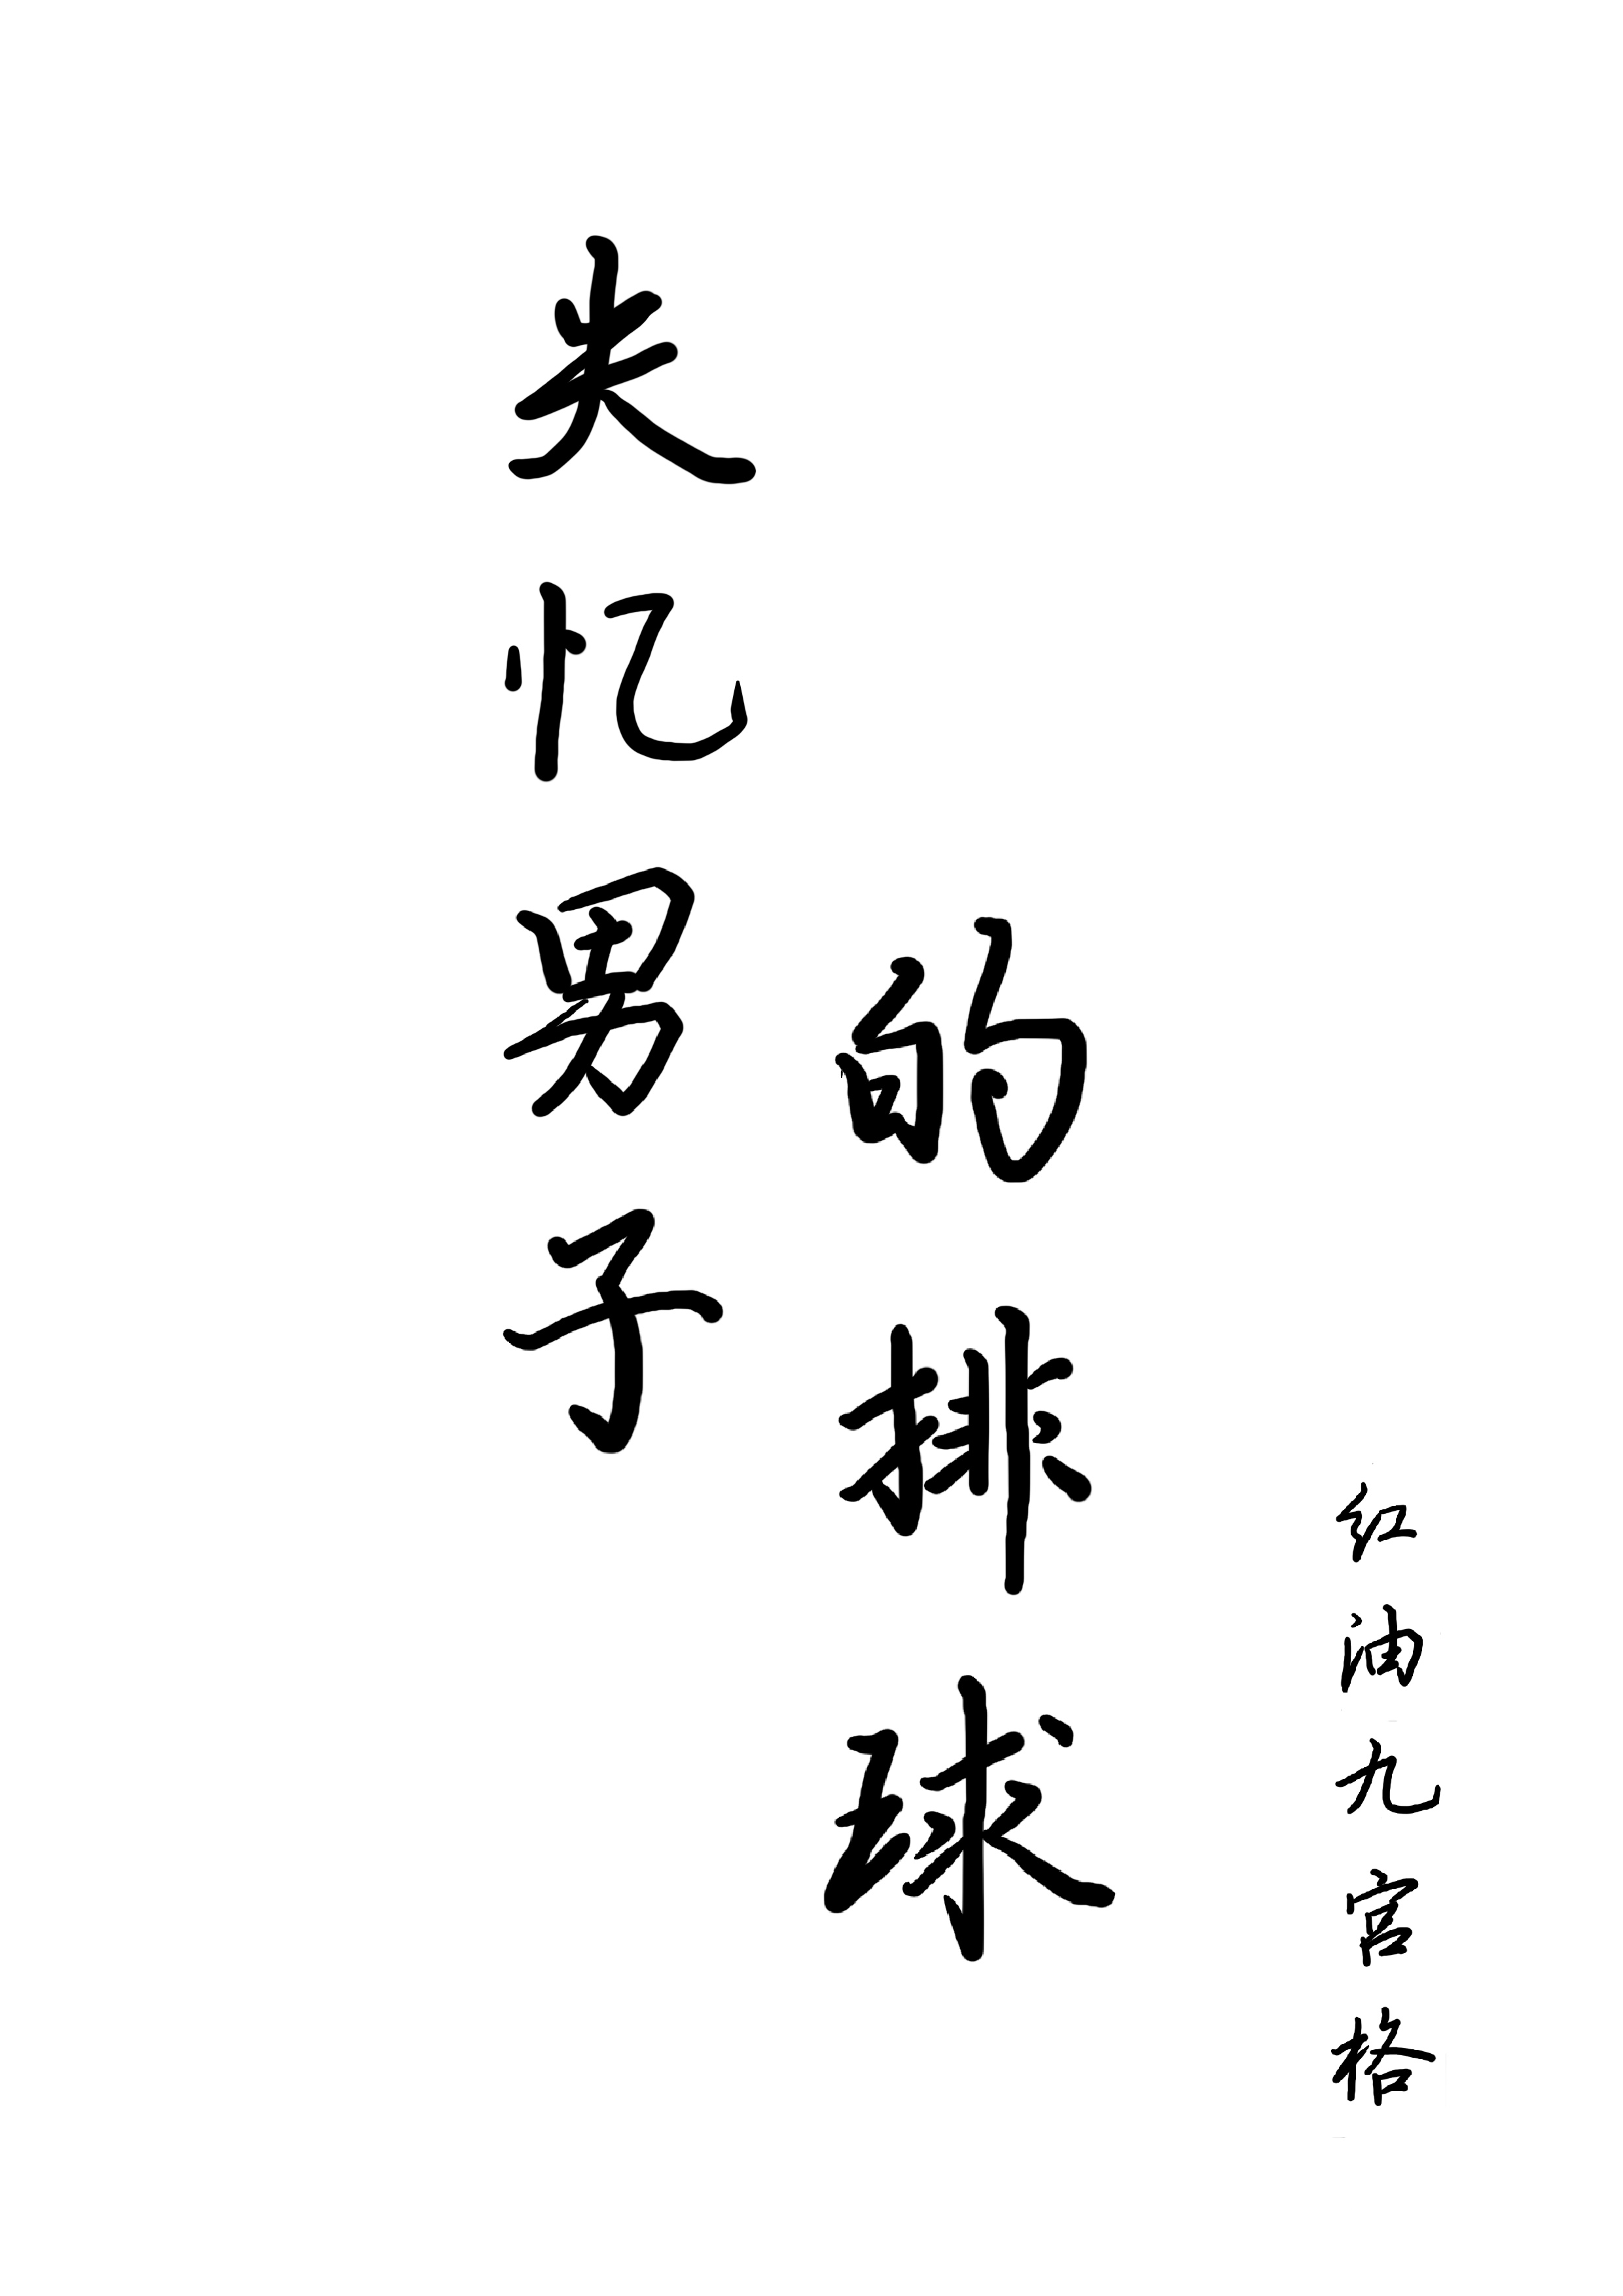 失忆男子
的排球
红油九宫格